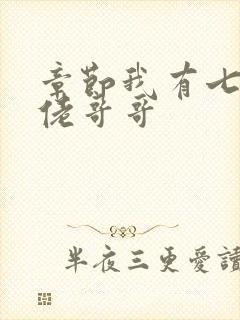 章節我有七
佬哥哥
半夜三更愛讀